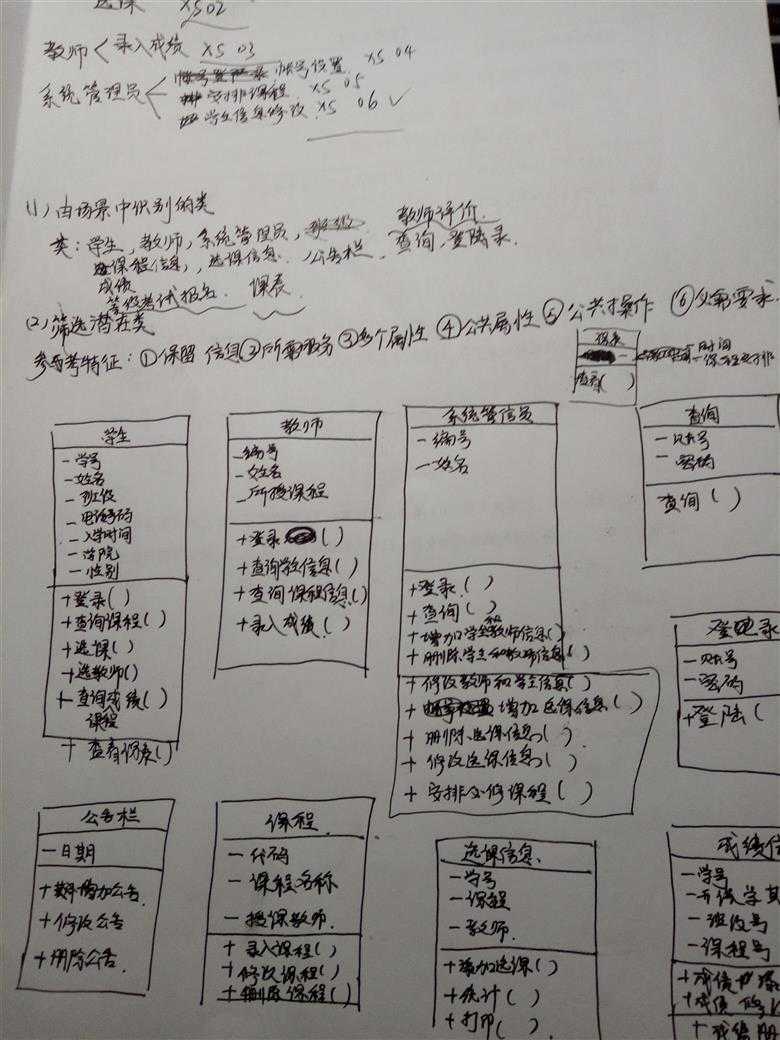 选课 XS02
教师 < 录入成绩 XS 03
系统管理员 < 帐号设置 XS 04
安排课程 XS 05
学生信息修改 XS 06 ✓
(1) 由场景中识别的类
类：学生，教师，系统管理员，班级 教师评价
课程信息，选课信息 公告栏 查询，登陆录
成绩
等级考试报名 课表
(2) 筛选潜在类
参考特征：①保留信息 ②所需服务 ③多个属性 ④公共属性 ⑤公共操作 ⑥必需要求
课表
时间
查看( )
学生
-学号
-姓名
-班级
-电话号码
-入学时间
-学院
-性别
+登录( )
+查询课程( )
+选课( )
+选教师( )
+查询成绩( )
课程
+查看课表( )
教师
-编号
-姓名
-所授课程
+登录( )
+查询学生信息( )
+查询课程信息( )
+录入成绩( )
系统管信员
-编号
-姓名
+登录( )
+查询( )
+增加学生和教师信息( )
+删除学生和教师信息( )
+修改教师和学生信息( )
+增加选课信息( )
+删除选课信息( )
+修改选课信息( )
+安排必修课程( )
查询
-帐号
-密码
查询( )
登陆录
-帐号
-密码
+登陆(
公告栏
-日期
+增加公告
+修改公告
+删除公告
课程
-代码
-课程名称
-授课教师
+录入课程( )
+修改课程( )
+删除课程( )
选课信息
-学号
-课程
-教师
+增加选课( )
+统计( )
+打印( )
成绩信
-学号
-开课学其
-班级号
-课程号
+成绩
+成绩
+成绩册